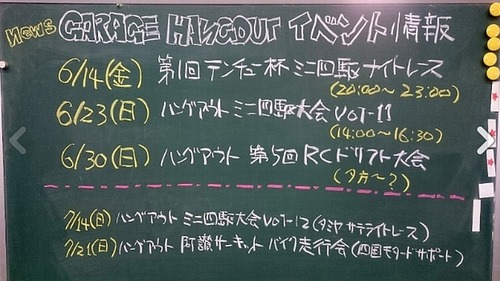 NEWS GARAGE HANGOUT イベント情報
6/14(金) 第1回 テンチュー杯 ミニ四駆 ナイトレース
(20:00~23:00)
6/23(日) ハングアウト ミニ四駆大会 vol-11
(14:00~16:30)
6/30(日) ハングアウト 第5回 RCドリフト大会
(夕方~?)
7/14(日) ハングアウト ミニ四駆大会 vol-12 (タミヤ サテライトレース)
7/21(日) ハングアウト 阿讃サーキット バイク走行会 (四国モタードサポート)